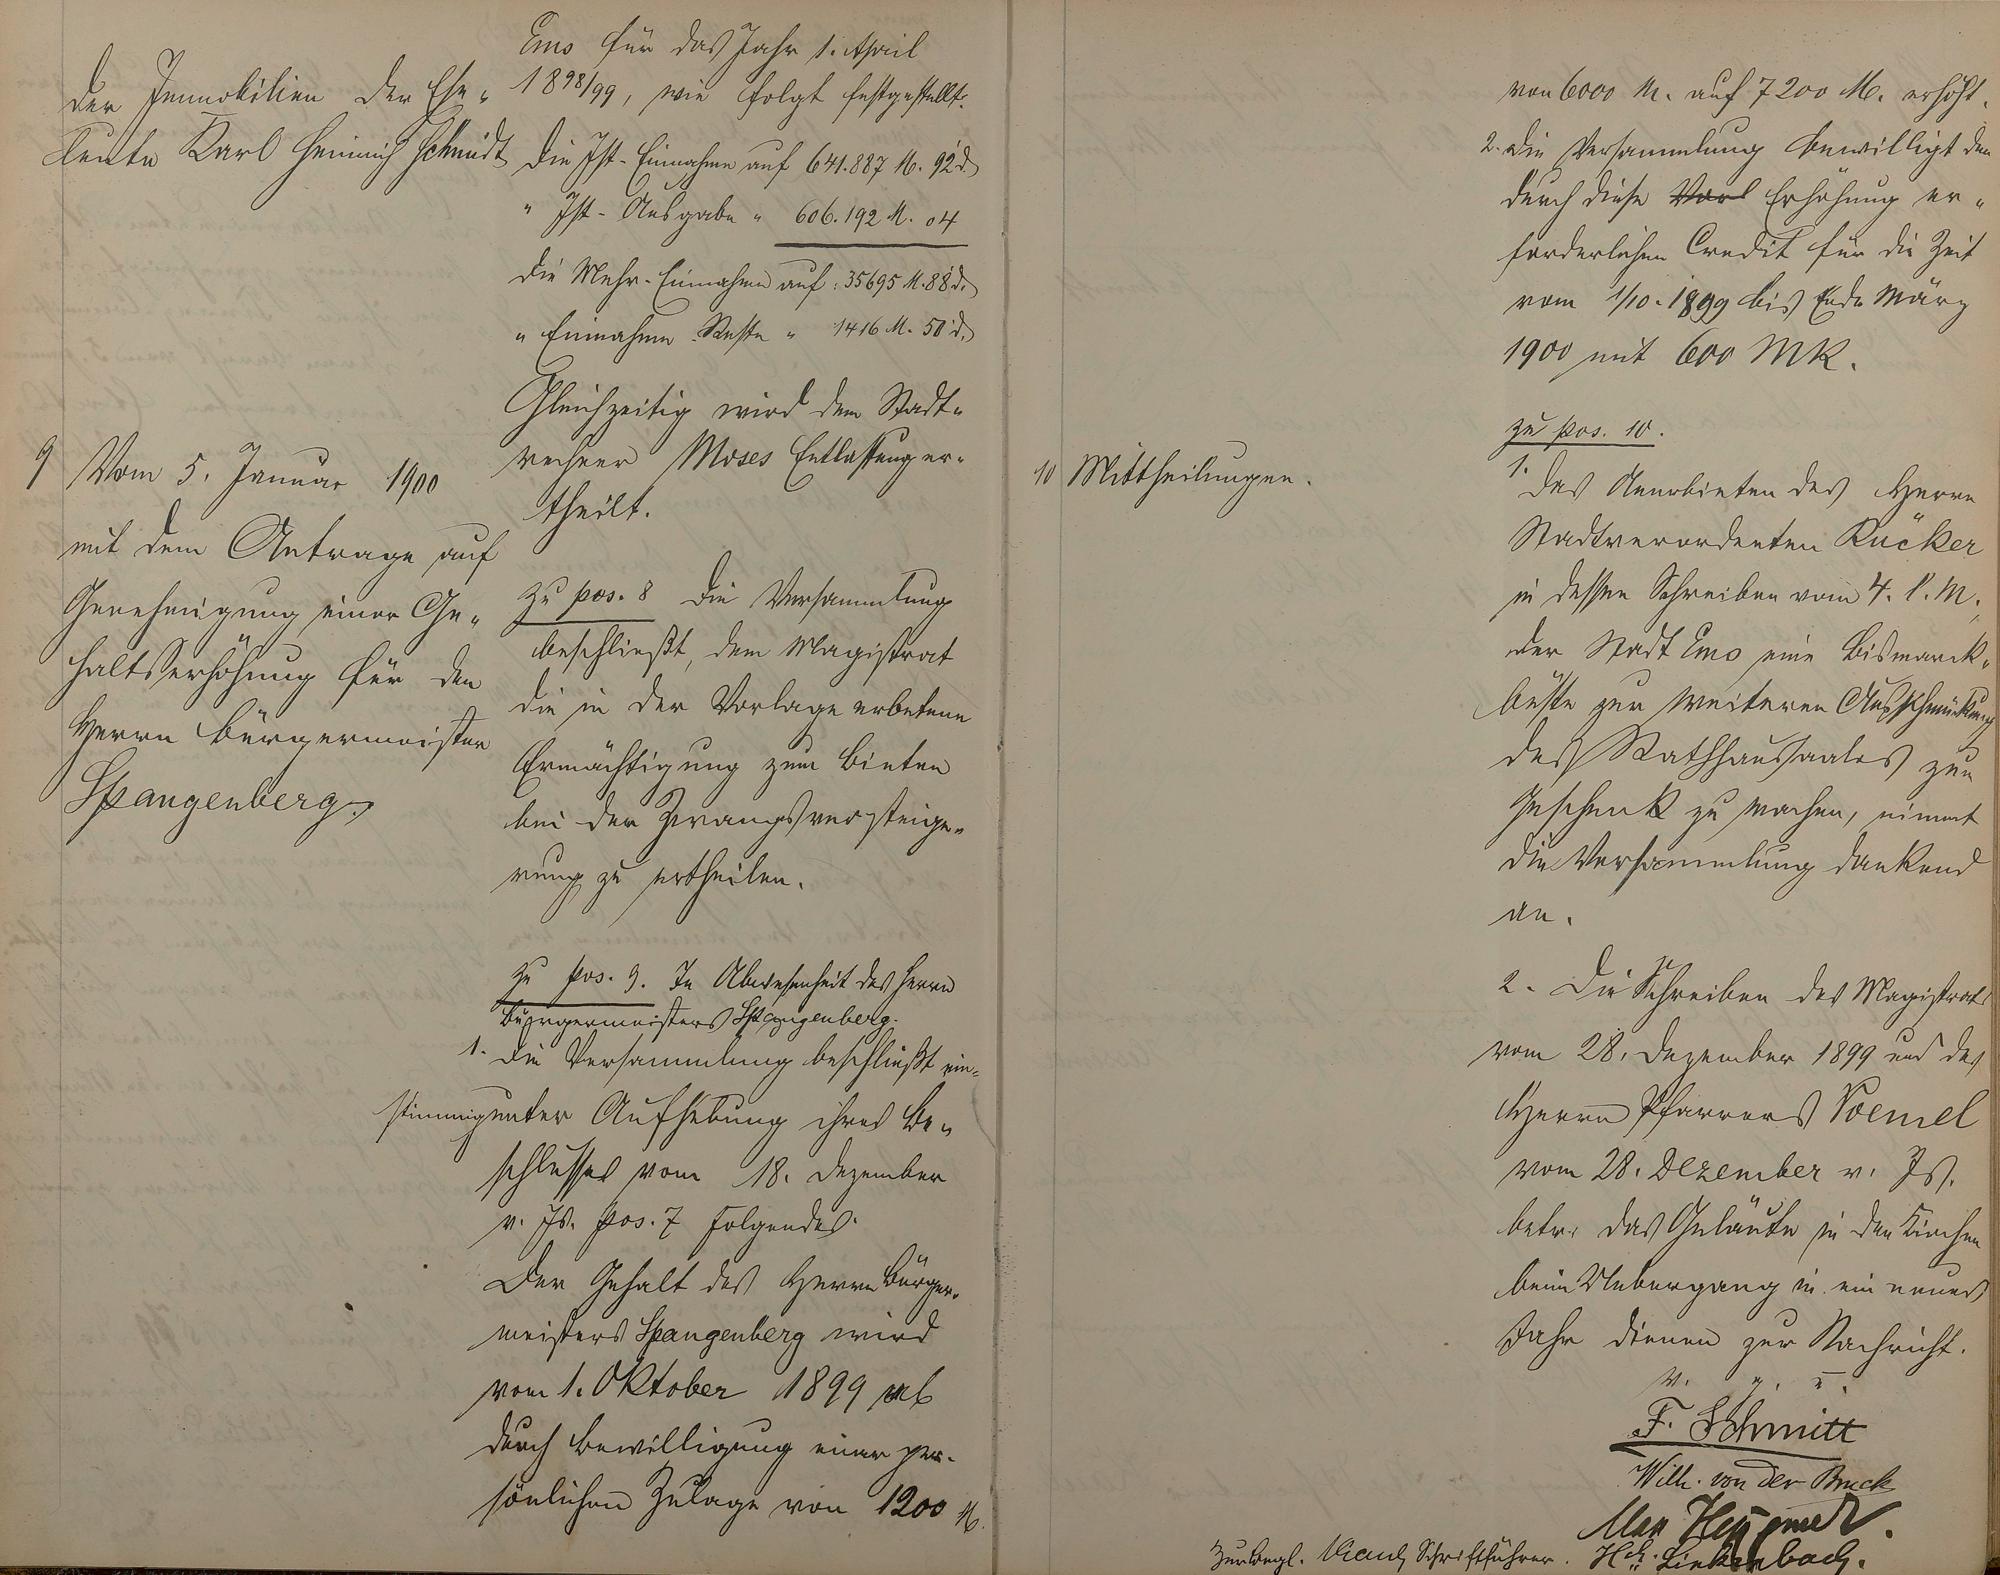 der Immobilien der Ehe-
leute Karl Heinrich Schmidt
9 Vom 5. Januar 1900
mit dem Antrage auf
Genehmigung einer Ge-
haltserhöhung für den
Herrn Bürgermeister
Spangenberg.
Ems für das Jahr 1. April
1898/99, wie folgt festgestellt:
Die Ist-Einnahme auf 641.887 M. 92 d.
" Ist-Ausgabe " 606.192 M. 04
die Mehr-Einnahme auf: 35695 M. 88 d.
" Einnahme-Reste " 1416 M. 50 d.
Gleichzeitig wird dem Stadt-
rechner Moses Entlastung er-
theilt.
zu pos. 8 Die Versammlung
beschließt, dem Magistrat
die in der Vorlage erbetene
Ermächtigung zum Bieten
bei der Zwangsversteige-
rung zu ertheilen.
zu pos. 9. In Abwesenheit des Herrn
Bürgermeisters Spangenberg.
1. Die Versammlung beschließt ein-
stimmig unter Aufhebung ihres Be-
schlusses vom 18. Dezember
v. Js. pos. 7 Folgendes.
Der Gehalt des Herrn Bürger-
meisters Spangenberg wird
vom 1. Oktober 1899 ab
durch Bewilligung einer per-
sönlichen Zulage von 1200 M.
von 6000 M. auf 7200 M. erhöht.
2. Die Versammlung bewilligt den
durch diese Erhöhung er-
forderlichen Credit für die Zeit
vom 1/10. 1899 bis Ende März
1900 mit 600 MK.
10 Mittheilungen.
zu pos. 10.
1.
Das Anerbieten des Herrn
Stadtverordneten Rücker
in dessen Schreiben vom 4. l. M.,
der Stadt Ems eine Bismarck-
büste zur weiteren Ausschmückung
des Rathhaussaales zum
Geschenk zu machen, nimmt
die Versammlung dankend
an.
2. Die Schreiben des Magistrats
vom 28. Dezember 1899 und des
Herrn Pfarrers Voemel
vom 28. Dezember v. Js.
betr. das Geläute in den Kirchen
beim Uebergang in ein neues
Jahr dienen zur Nachricht.
v. g. u.
F. Schmitt
Wilh. von der Bruck
Max
Zur Begl. Schriftführer. Hch. Linkenbach.